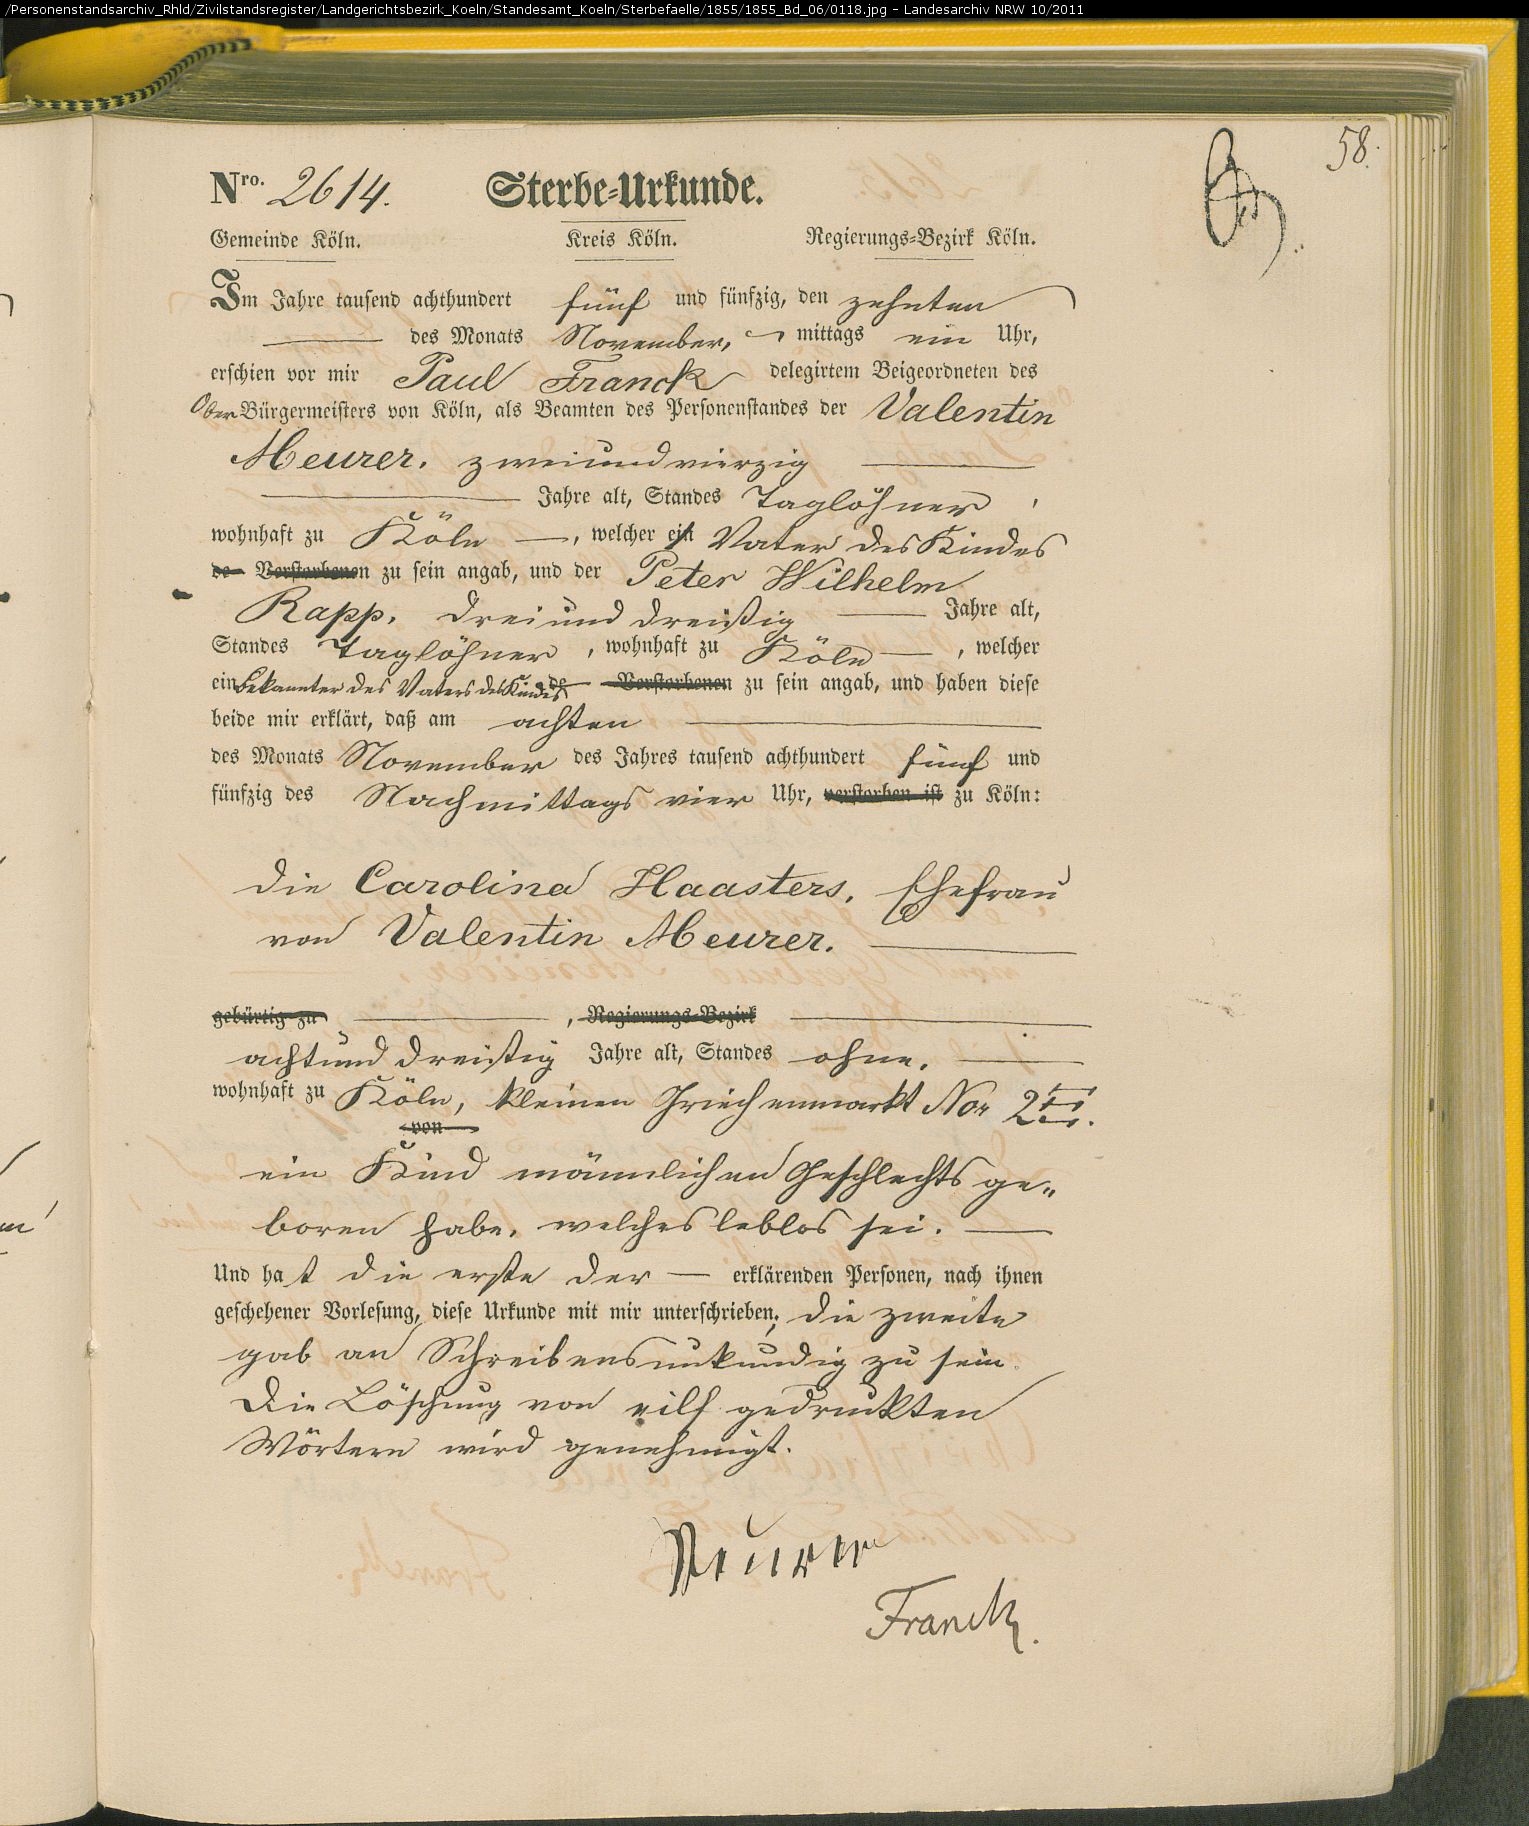 /Personenstandsarchiv_Rhld/Zivilstandsregister/Landgerichtsbezirk_Koeln/Standesamt_Koeln/Sterbefaelle/1855/1855_Bd_06/0118.jpg - Landesarchiv NRW 10/2011
58.
Nro. 2614. Sterbe-Urkunde.
Gemeinde Köln. Kreis Köln. Regierungs-Bezirk Köln.
Im Jahre tausend achthundert fünf und fünfzig, den zehnten
des Monats November, mittags ein Uhr,
erschien vor mir Paul Franck delegirtem Beigeordneten des
Ober Bürgermeisters von Köln, als Beamten des Personenstandes der Valentin
Meurer, zweiundvierzig
Jahre alt, Standes Taglöhner,
wohnhaft zu Köln, welcher ein Vater des Kindes
de Verstorbenen zu sein angab, und der Peter Wilhelm
Rapp, dreiunddreißig Jahre alt,
Standes Taglöhner, wohnhaft zu Köln, welcher
ein Bekannter des Vaters des Kindes de Verstorbenen zu sein angab, und haben diese
beide mir erklärt, daß am achten
des Monats November des Jahres tausend achthundert fünf und
fünfzig des Nachmittags vier Uhr, verstorben ist zu Köln:
die Carolina Haasters, Ehefrau
von Valentin Meurer.
gebürtig zu , Regierungs-Bezirk
achtunddreißig Jahre alt, Standes ohne,
wohnhaft zu Köln, kleinen Griechenmarkt Nor 2
von
ein Kind männlichen Geschlechts ge„
boren habe, welches leblos sei.
Und hat die erste der erklärenden Personen, nach ihnen
geschehener Vorlesung, diese Urkunde mit mir unterschrieben; die zweite
gab an Schreibensunkundig zu sein.
Die Löschung von eilf gedruckten
Wörtern wird genehmigt.
Meurer
Franck.